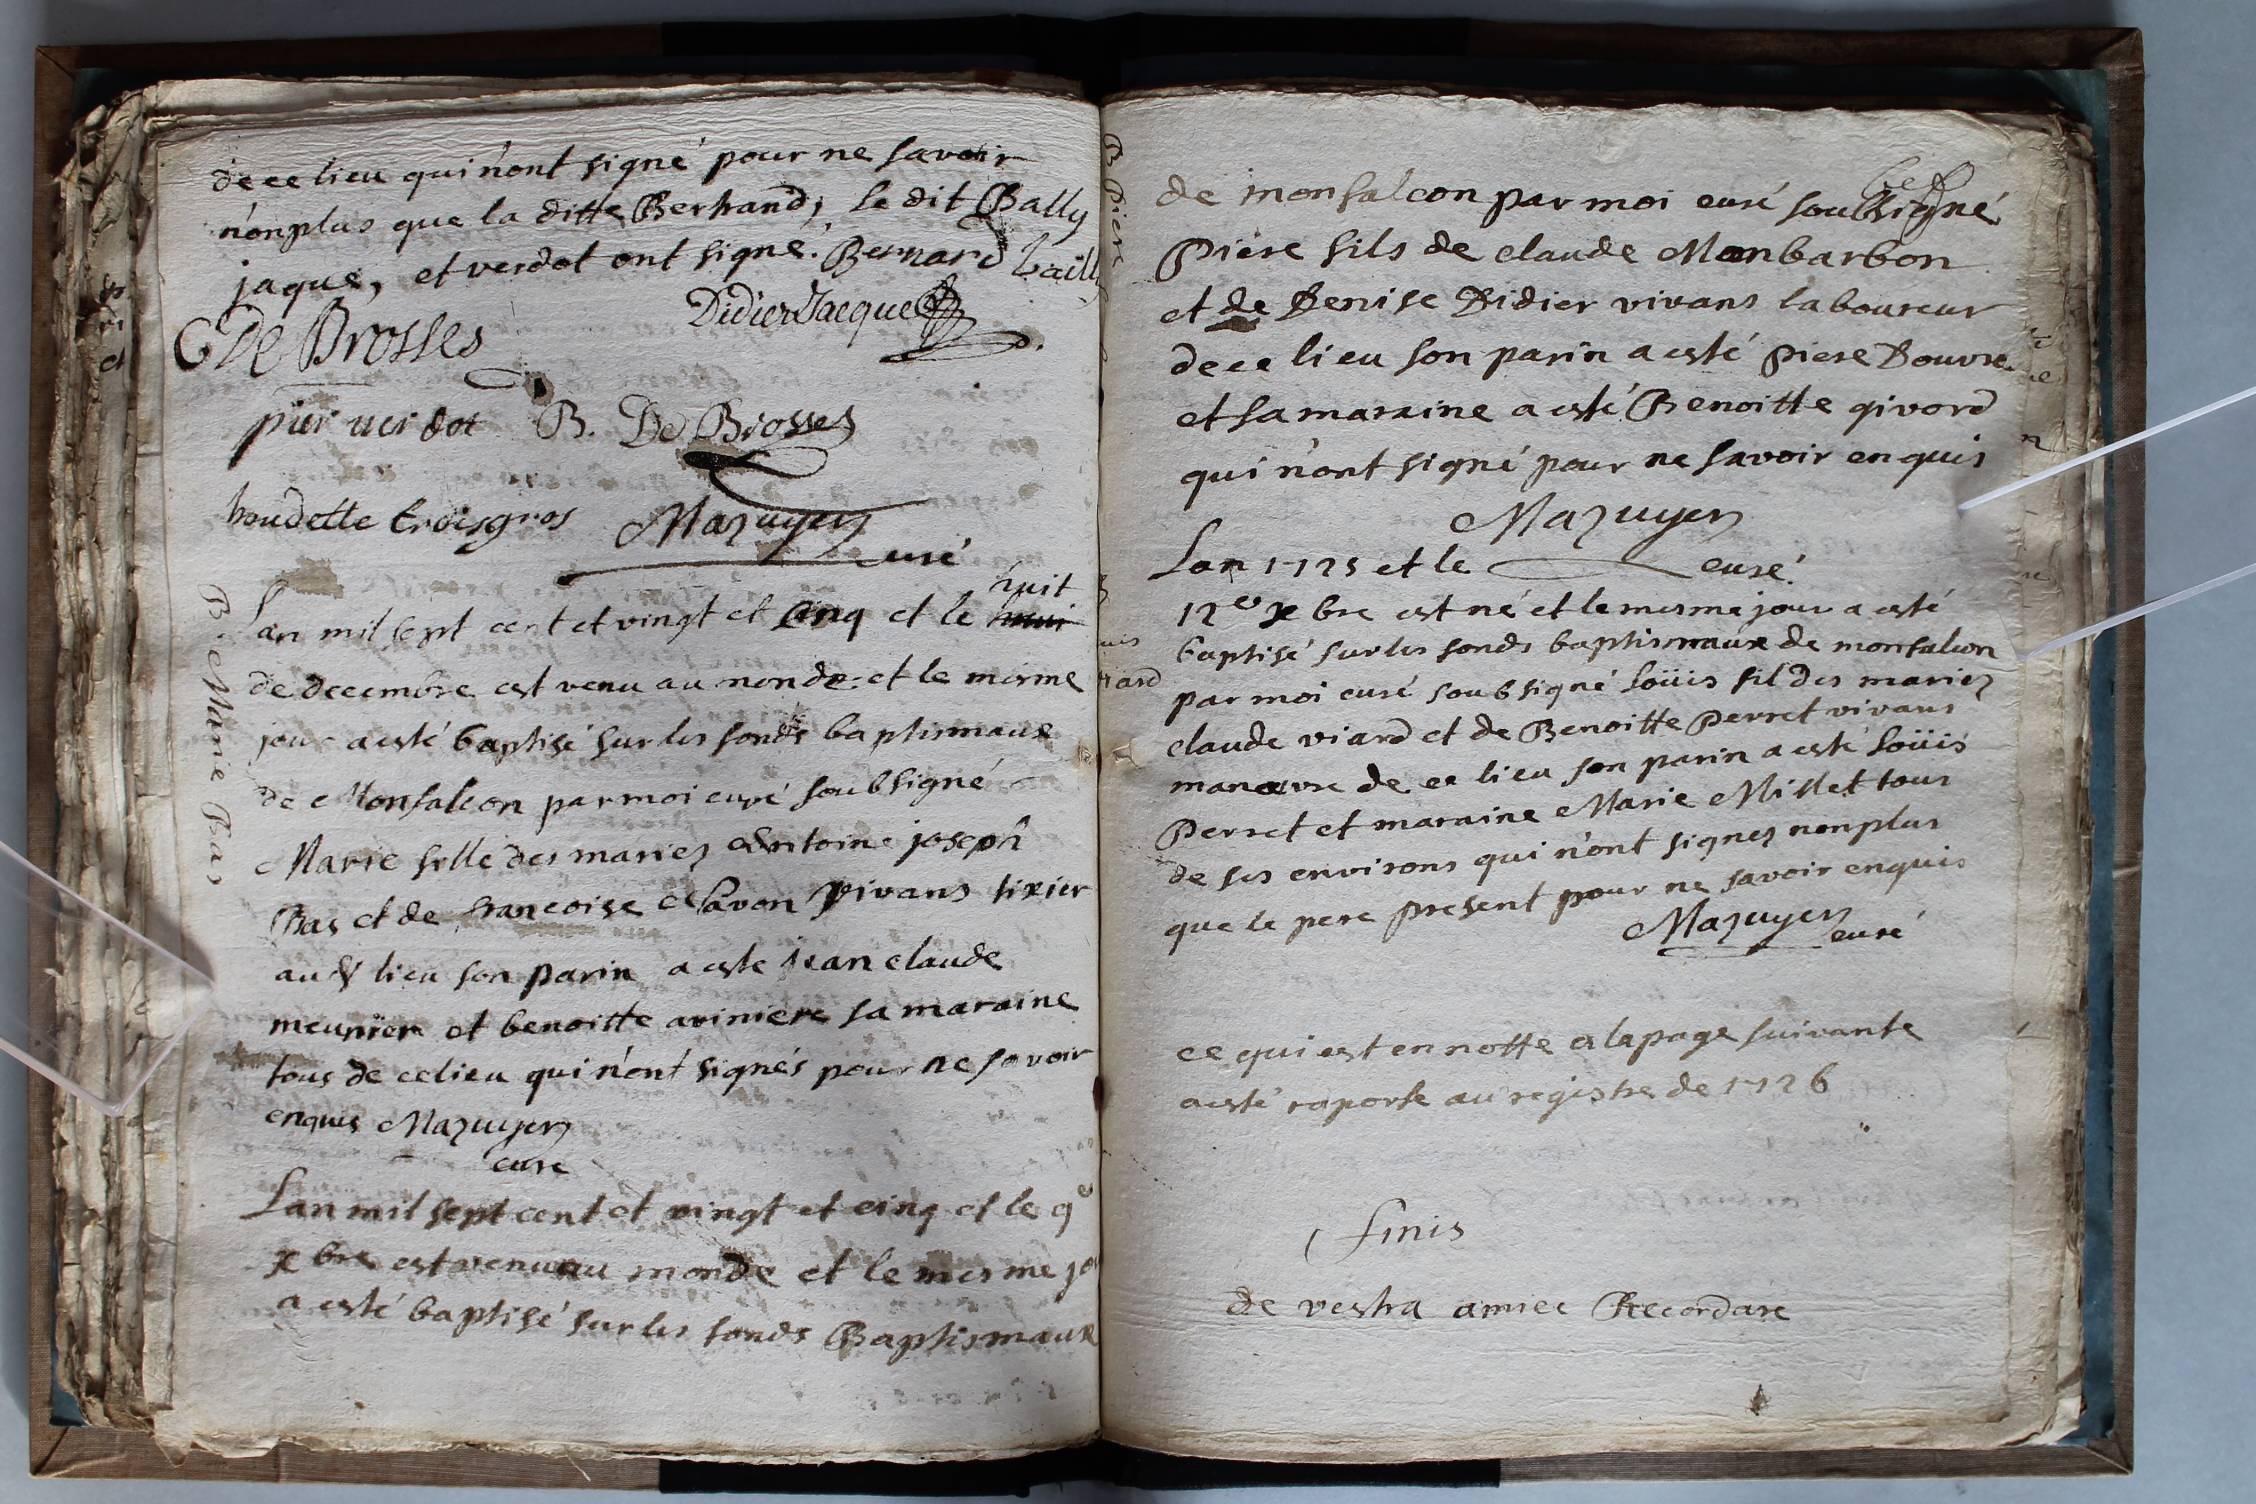 de ce lieu qui n'ont signé pour ne savoir
n'onplus que la ditte Berhand, le dit Bally
jaque, et verdot ont signé. Bernard bailly
Didier Jacque
C De Brosses
pier verdot B. De Brosses
boudette troisgros Mazuyer
curé
huit
Lan mil sept cent et vingt et cinq et le huit
de decembre est venu au monde et le mesme
jour a esté baptisé sur les fonds baptismaux
de Monfalcon par moi curé soubsigné
B. Marie Bas
Marie fille des mariez Antoine joseph
Bas et de francoise Lavon vivans tixier
audt lieu son parin a este jean claude
meunier et benoitte aviniere sa maraine
tous de ce lieu qui n'ont signés pour ne savoir
enquis Mazuyer
curé
Lan mil sept cent et vingt et cinq et le 9e
xbre est venu au monde et le mesme jour
a esté baptisé sur les fonds Baptismaux
B Piere
de monfalcon par moi curé soubsigné
Piere fils de claude Monbarbon
et de Denise Didier vivans laboureur
de ce lieu son parin a esté piere Douvre
et sa maraine a esté Benoitte givord
qui n'ont signé pour ne savoir enquis
Mazuyer
Lan 1725 et le curé.
12e xbre est né et le mesme jour a esté
baptisé sur les fonds baptismaux de monfalcon
par moi curé soubsigné Loüis fil des mariez
claude viard et de Benoitte Perret vivans
manœuvre de ce lieu son parin a esté Loüis
Perret et maraine Marie Millet tous
de ses environs qui n'ont signez nonplus
que le pere present pour ne savoir enquis
Mazuyer
curé
ce qui est en notte a la page suivante
a esté raporte au registre de 1726
finis
de vestra amice Recordare